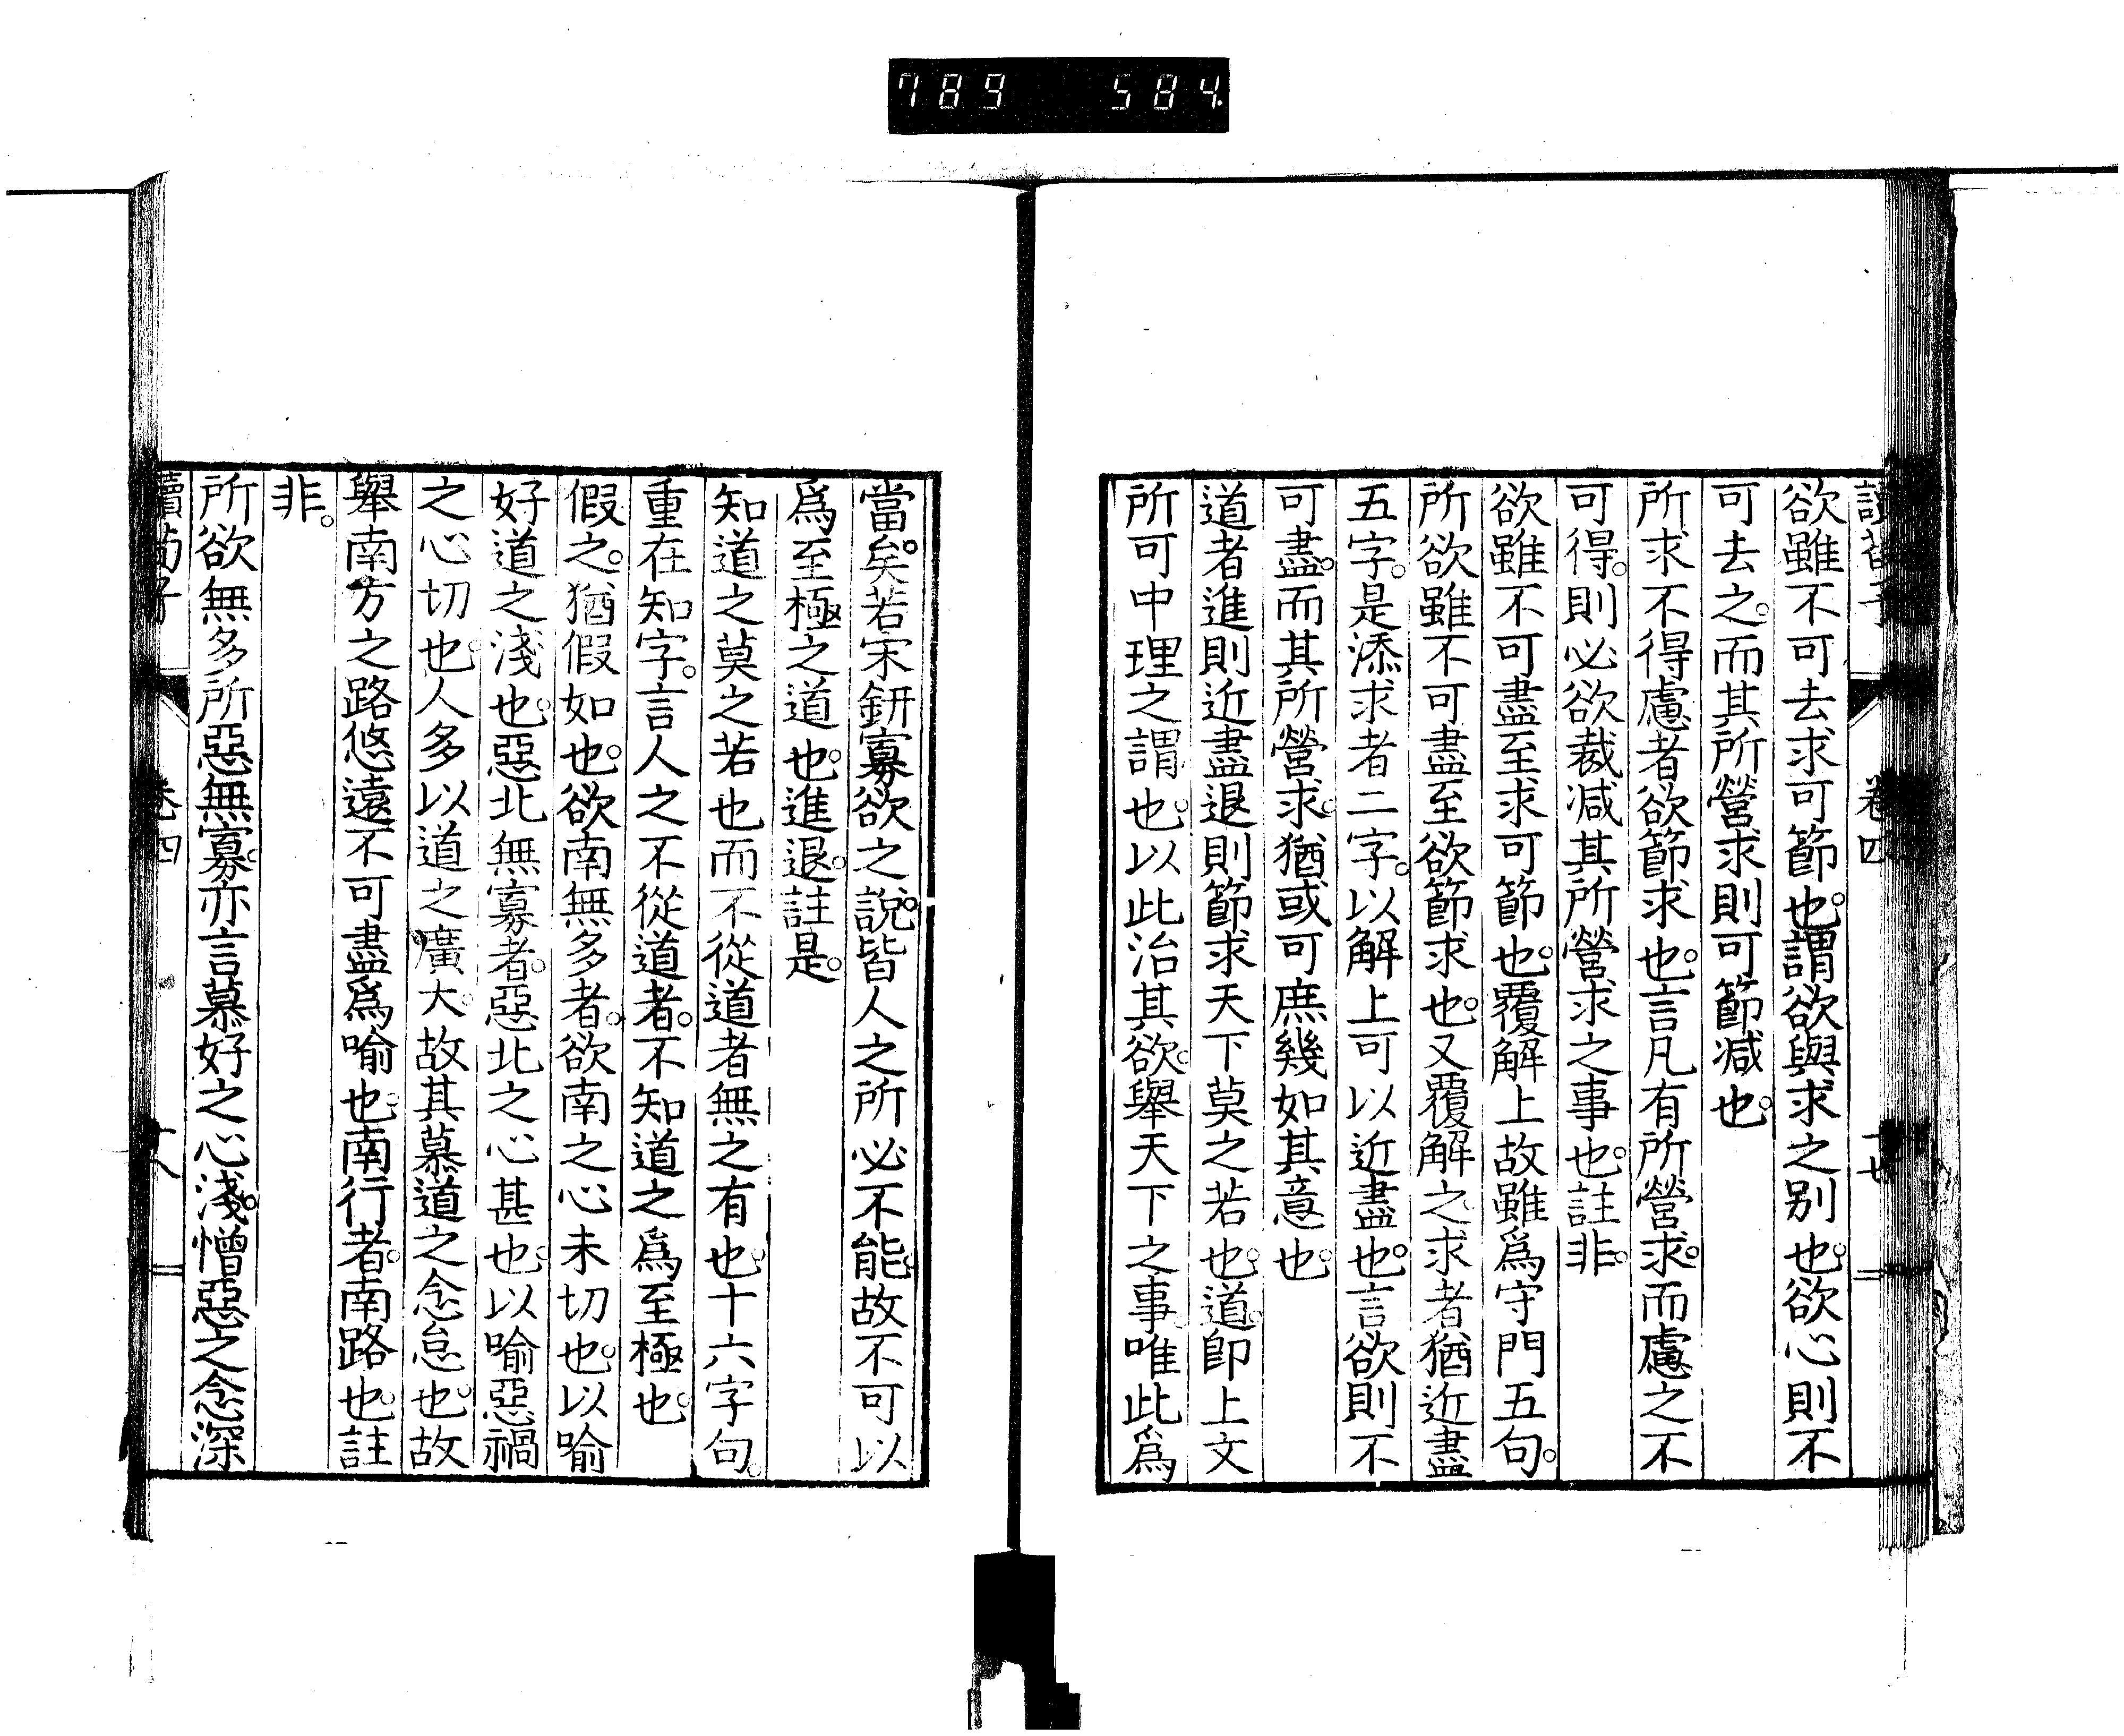 789 584.
欲雖不可去求可節也。謂欲與求之別也。欲心則不
可去之。而其所營求則可節減也。
所求不得慮者欲節求也。言凡有所營求。而慮之不
可得。則必欲裁減其所營求之事也。註非。
欲雖不可盡至求可節也。覆解上故雖爲守門五句。
所欲雖不可盡至欲節求也。又覆解之。求者猶近盡
五字。是添求者二字。以解上可以近盡也。言欲則不
可盡。而其所營求。猶或可庶幾如其意也。
道者進則近盡退則節求天下莫之若也。道。卽上文
所可中理之謂也。以此治其欲。舉天下之事。唯此爲
當矣。若宋鈃寡欲之說。皆人之所必不能。故不可以
爲至極之道也。進退。註是。
知道之莫之若也而不從道者無之有也。十六字句。
重在知字。言人之不從道者。不知道之爲至極也。
假之。猶假如也。欲南無多者。欲南之心未切也。以喻
好道之淺也。惡北無寡者。惡北之心甚也。以喻惡禍
之心切也。人多以道之廣大。故其慕道之念怠也。故
舉南方之路悠遠不可盡爲喻也。南行者。南路也。註
非。
所欲無多所惡無寡。亦言慕好之心淺。憎惡之念深
卷四